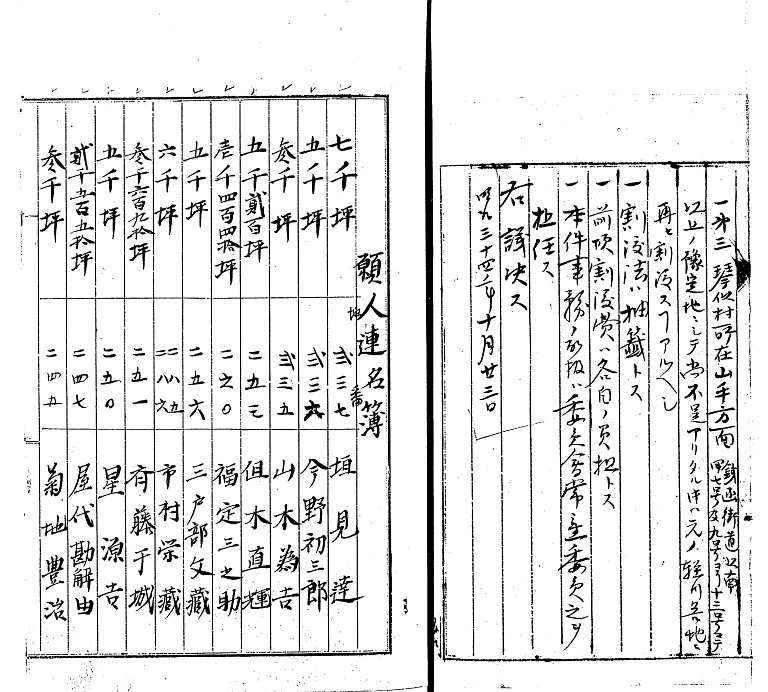 一 第三 琴似村所在山手方面 銭函街道以南
甲七号及九号ヨリ十三号マデ
以上ノ豫定地ニシテ尚不足アリタル時ハ元ノ軽川官地ニ
再ヒ割渡スコアルヘシ
一 割渡法ハ抽籤トス
一 前項割渡費ハ各自ノ負担トス
一 本件事務ノ取扱ハ委員會常置委員之ヲ
担任ス
右議決ス
明九三十四年十月廿三日
願人連名簿
七千坪 地 弐三七 番 垣見達
五千坪 弐三六 今野初三郎
参千坪 弐三五 山木為吉
五千貳百坪 二五三 但木直輝
壱千四百四拾坪 二六〇 福定三之助
五千坪 二五六 三戸部文藏
六千坪 二八五 二八六 市村栄藏
参千六百九拾坪 二五一 斉藤于城
五千坪 二五〇 星源吉
貳千五百五拾坪 二四七 屋代勘解由
参千坪 二四五 菊地豊治